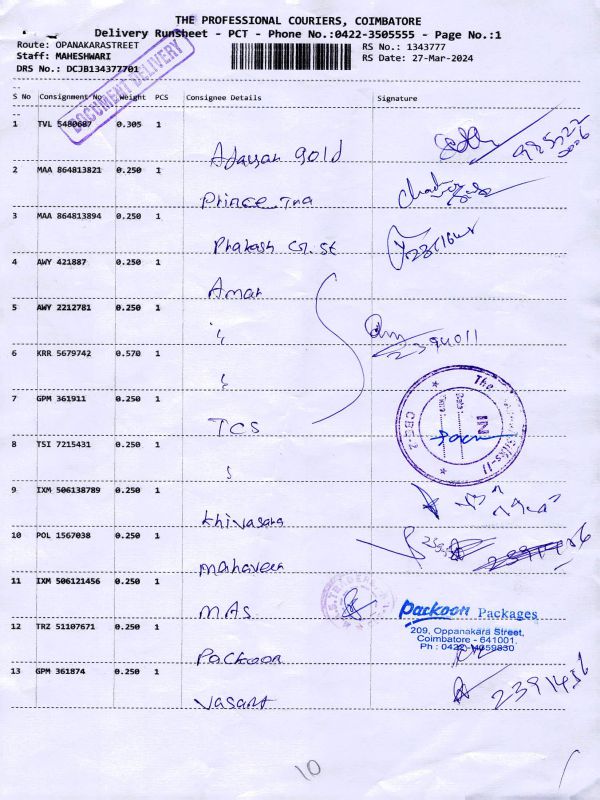 THE PROFESSIONAL COURIERS, COIMBATORE
Delivery RunSheet - PCT - Phone No.:0422-3505555 - Page No.:1
Route: OPANAKARASTREET
RS No.: 1343777
Staff: MAHESHWARI
RS Date: 27-Mar-2024
DRS No.: DCJB134377701
DOCUMENT DELIVERY
S No Consignment No Weight PCS Consignee Details Signature
1 TVL 5480687 0.305 1
2 MAA 864813821 0.250 1
Prince
3 MAA 864813894 0.250 1
Prakash
4 AWY 421887 0.250 1
Amar
5 AWY 2212781 0.250 1
2394011
6 KRR 5679742 0.570 1
7 GPM 361911 0.250 1
TCS
IN
8 TSI 7215431 0.250 1
9 IXM 506138789 0.250 1
Khivasara
10 POL 1567038 0.250 1
Mahaveer
11 IXM 506121456 0.250 1
MAS
Packoon Packages
209, Oppanakara Street,
Coimbatore - 641001.
12 TRZ 51107671 0.250 1
Packoon
13 GPM 361874 0.250 1
Vasant
2391456
10